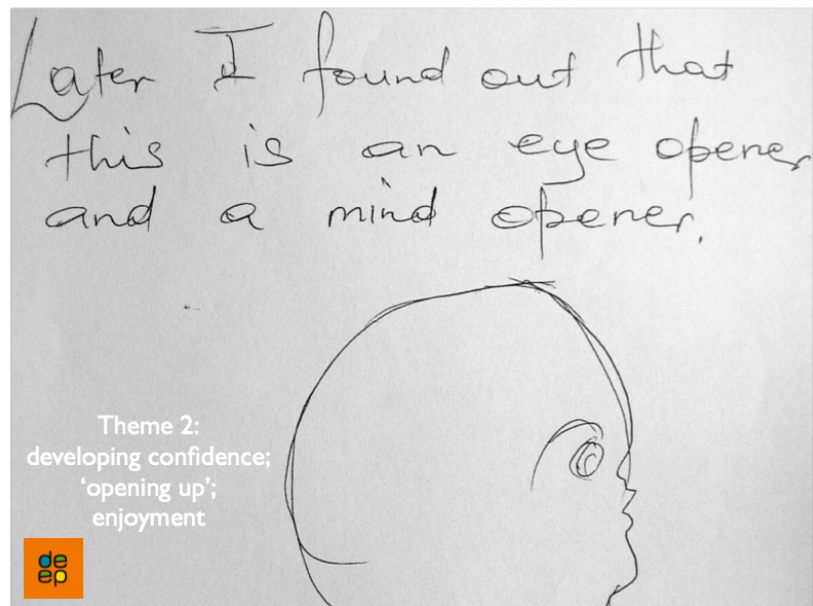 Later I found out that
this is an eye opener
and a mind opener.
Theme 2:
developing confidence;
‘opening up’;
enjoyment
de
ep